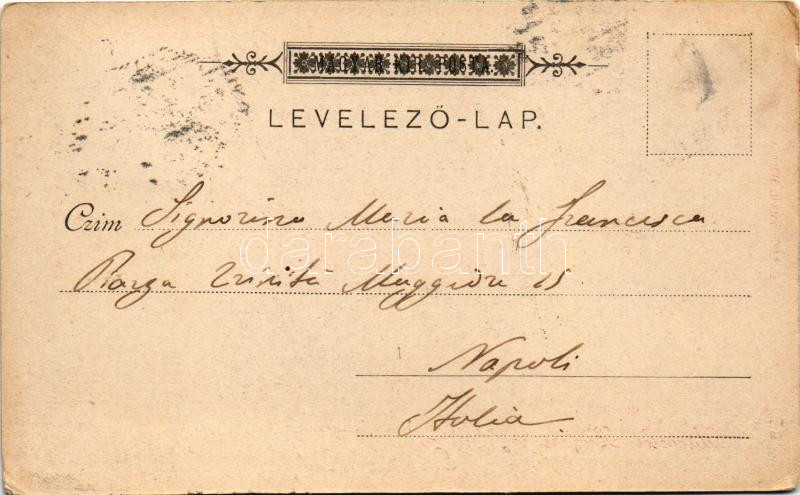 MAGYAR KIR. POSTA.
LEVELEZŐ-LAP.
Czim Signorina Maria la Francesca
Piazza Trinità Maggiore 15
Napoli
Italia.
darabanth